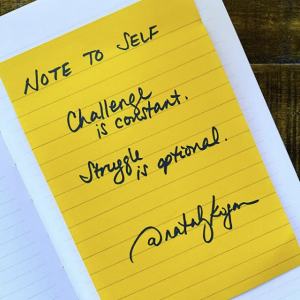 NOTE TO SELF
Challenge
is constant.
Struggle
is optional.
@natalykogan